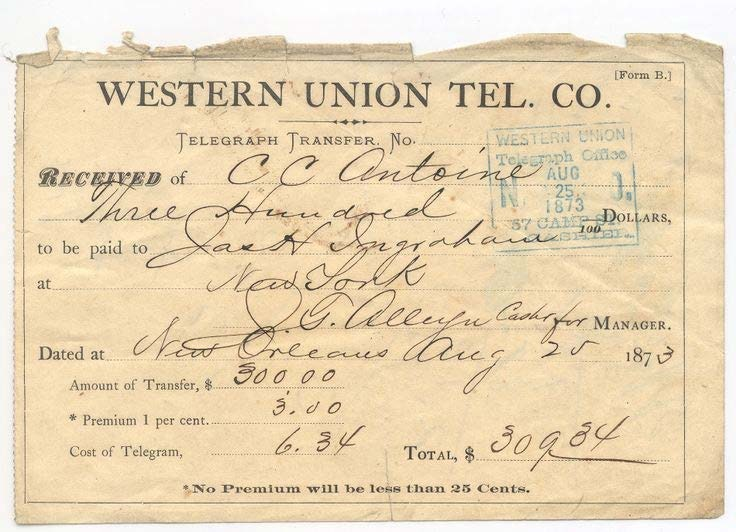 [Form B.]
WESTERN UNION TEL. CO.
TELEGRAPH TRANSFER, No.
WESTERN UNION
Telegraph Office
AUG
25
1873
N. O.
57 CAMP ST.
RECEIVED of C C Antoine
Three Hundred 100 DOLLARS,
to be paid to Jas H Ingraham
at New York
J G. Alleyn Cashr for MANAGER.
Dated at New Orleans Aug 25 1873
Amount of Transfer, $ 300.00
* Premium 1 per cent. 3.00
Cost of Telegram, 6.34 TOTAL, $ 309.34
*No Premium will be less than 25 Cents.